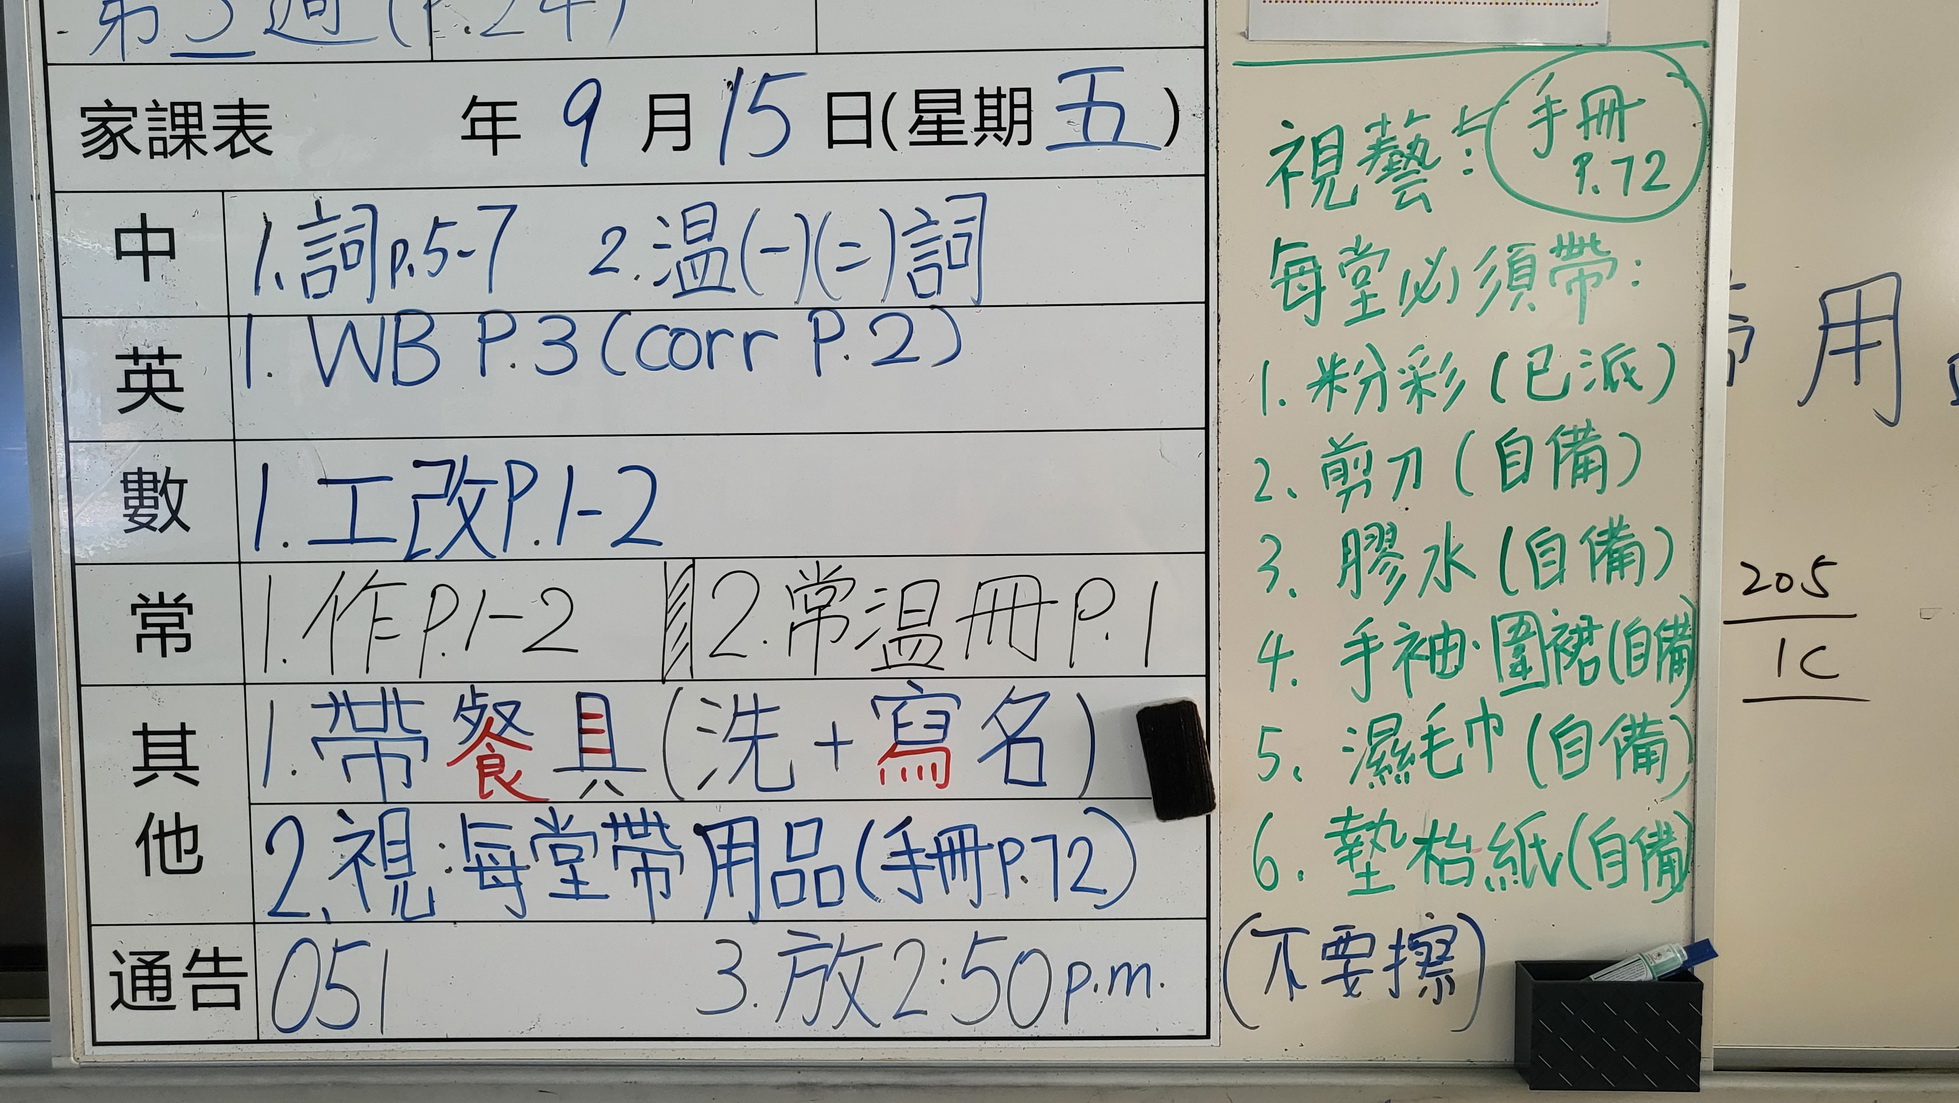 第3週(P.24)
家課表 年 9 月 15 日(星期 五)
中 1.詞p.5-7 2.温(一)(二)詞
英 1. WB P.3(corr P.2)
數 1.工改P.1-2
常 1.作P.1-2 2.常温冊P.1
其他 1.帶餐具(洗+寫名)
2.視:每堂帶用品(手冊P.72)
通告 051 3.放2:50p.m.
視藝: 手冊
P.72
每堂必須帶:
1.粉彩(已派)
2.剪刀(自備)
3.膠水(自備)
4.手袖·圍裙(自備)
5.濕毛巾(自備)
6.墊枱紙(自備)
(不要擦)
用
205
1C